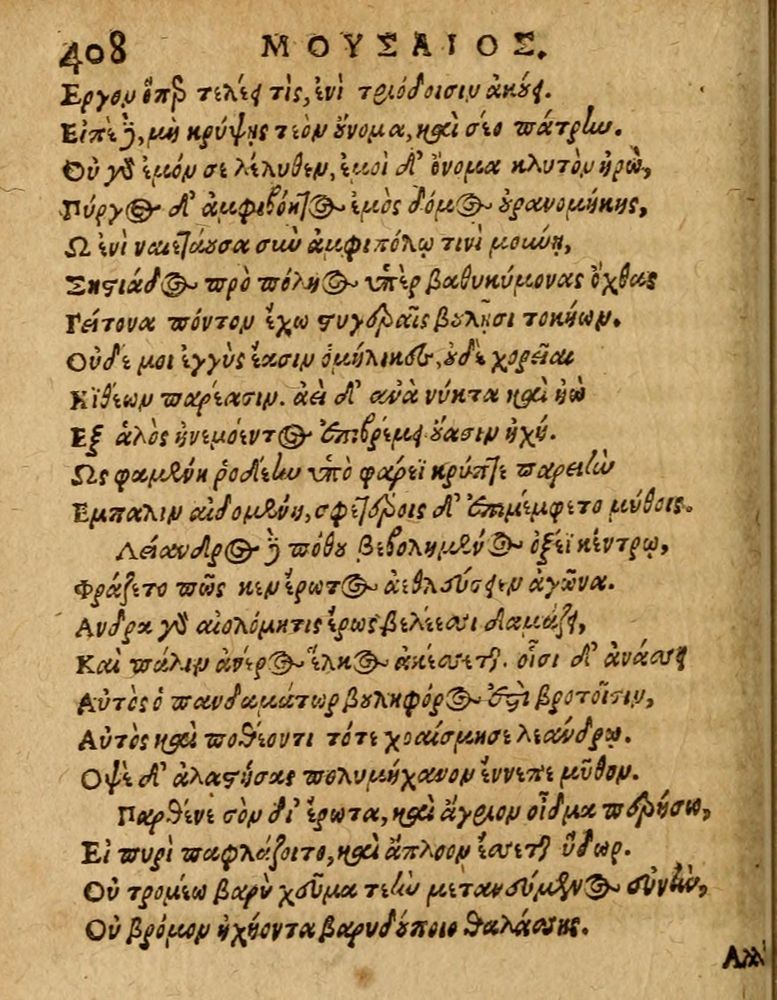 408 ΜΟΥΣΑΙΟΣ.
Εργον ὅπερ τελέει τὶς, ἐνὶ τριόδοισιν ἀκούει.
Εἰπὲ δὲ, μὴ κρύψῃς τεὸν οὔνομα, καὶ σέο πάτρην.
Οὐ γὰρ ἐμόν σε λέληθεν, ἐμοὶ δ' ὄνομα κλυτὸν ἡρὼ,
Πύργος δ' ἀμφιβόητος ἐμὸς δόμος οὐρανομήκης,
Ω ἐνὶ ναιετάουσα σὺν ἀμφιπόλῳ τινὶ μούνῃ,
Σηστιάδος πρὸ πόληος ὑπὲρ βαθυκύμονας ὄχθας
Γείτονα πόντον ἔχω στυγεραῖς βουλῇσι τοκήων.
Οὐδέ μοι ἐγγὺς ἔασιν ὁμήλικες, οὐδὲ χορεῖαι
Ηϊθέων παρέασιν. ἀεὶ δ' ανὰ νύκτα καὶ ἠὼ
Εξ ἁλὸς ἠνεμόεντος ἐπιβρέμει οὔασιν ἠχή.
Ως φαμένη ῥοδέην ὑπὸ φάρεϊ κρύπτε παρειὴν
Εμπαλιν αἰδομένη, σφετέροις δ' ἐπιμέμφετο μύθοις.
Λείανδρος δὲ πόθου βεβολημένος ὀξέϊ κέντρῳ,
Φράζετο πῶς κεν ἔρωτος ἀεθλεύσειεν ἀγῶνα.
Ανδρα γὰρ αἰολόμητις ἔρως βελέεσσι δαμάζει,
Καὶ πάλιν ἀνέρος ἕλκος ἀκέσσεται. οἷσι δ' ἀνάσσει
Αὐτὸς ὁ πανδαμάτωρ βουληφόρος ἐστὶ βροτοῖσιν,
Αὐτὸς καὶ ποθέοντι τότε χραίσμησε λεάνδρῳ.
Οψὲ δ' ἀλαστήσας πολυμήχανον ἔννεπε μῦθον.
Παρθένε σὸν δι' ἔρωτα, καὶ ἄγριον οἶδμα περήσω,
Εἰ πυρὶ παφλάζοιτο, καὶ ἄπλοον ἔσσεται ὕδωρ.
Οὐ τρομέω βαρὺ χεῦμα τεὴν μετανεύμενος εὐνὴν,
Οὐ βρόμον ἠχήεντα βαρυδούποιο θαλάσσης.
Αλλ'